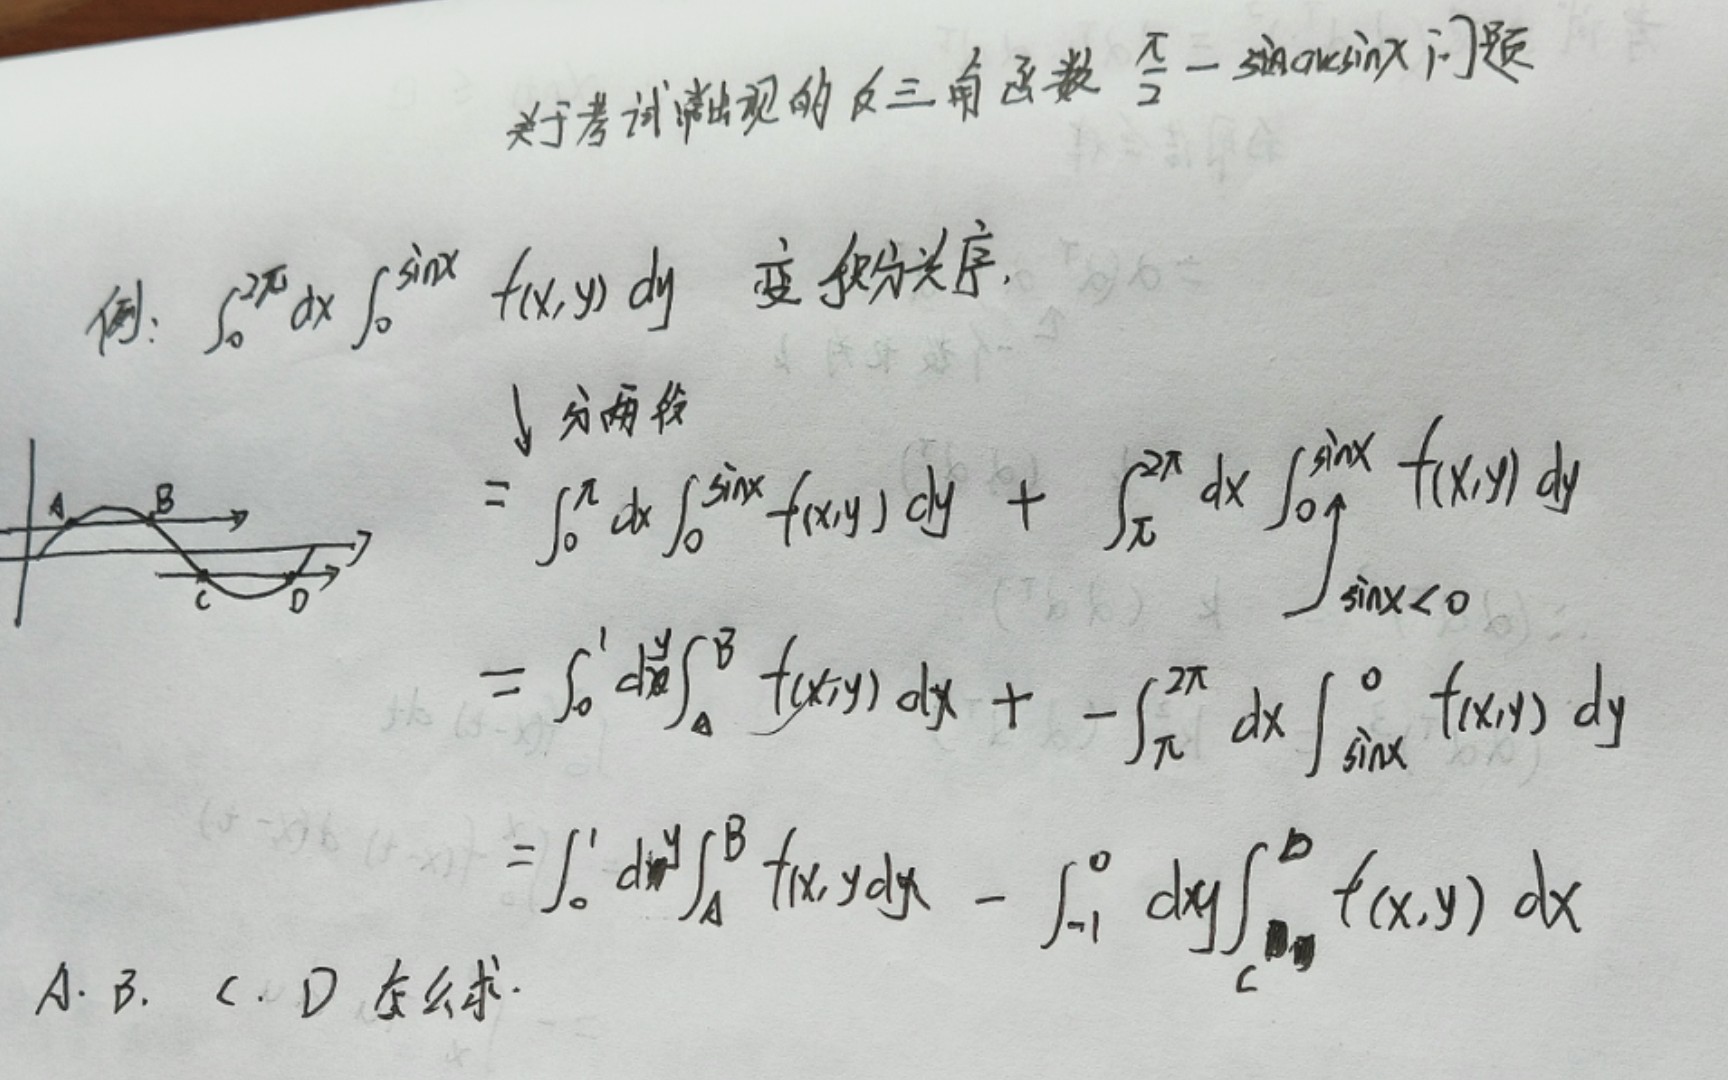 关于考试常出现的反三角函数 π/2 - sinarcsinx 问题
例: ∫₀^{2π} dx ∫₀^{sinx} f(x,y) dy 变积分次序.
↓ 分两段
= ∫₀^{π} dx ∫₀^{sinx} f(x,y) dy + ∫_{π}^{2π} dx ∫₀^{sinx} f(x,y) dy
A B
C D
sinx<0
= ∫₀^{1} dy ∫_{A}^{B} f(x,y) dx + -∫_{π}^{2π} dx ∫_{sinx}^{0} f(x,y) dy
= ∫₀^{1} dy ∫_{A}^{B} f(x,y dx - ∫_{-1}^{0} dy ∫_{C}^{D} f(x,y) dx
A. B. C. D 怎么求.